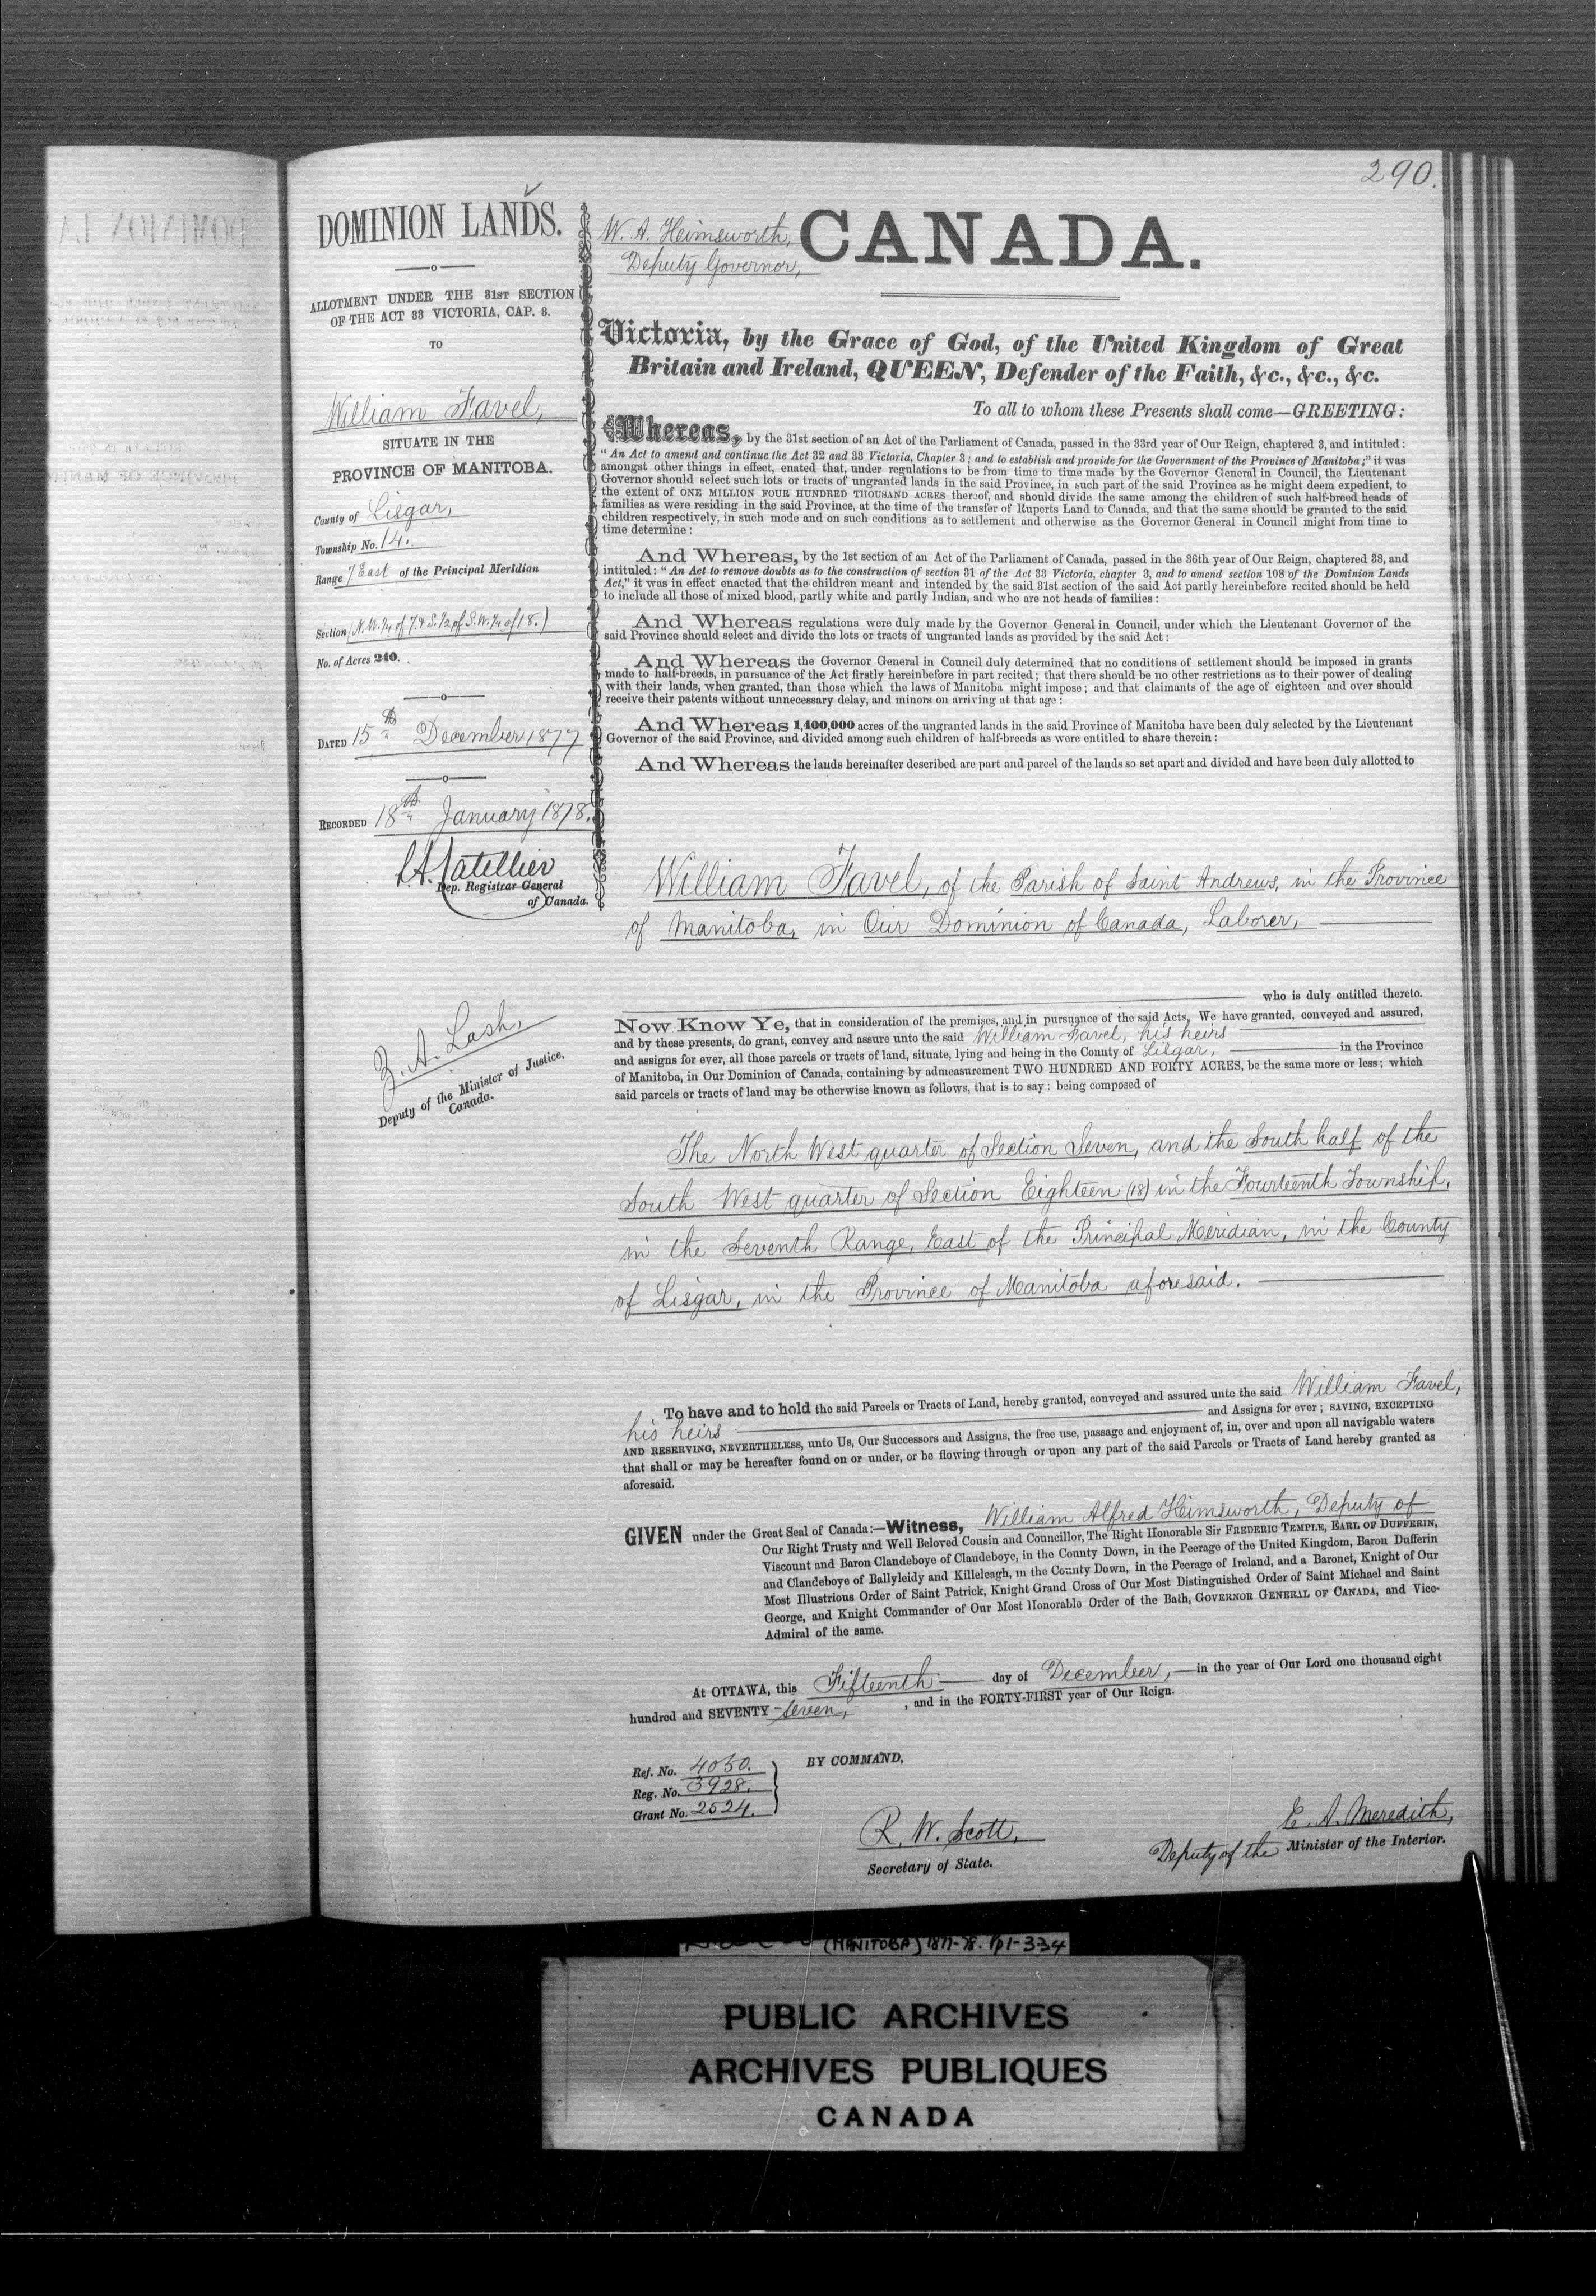 290.
DOMINION LANDS.
ALLOTMENT UNDER THE 31ST SECTION
OF THE ACT 33 VICTORIA, CAP. 3.
TO
William Favel,
SITUATE IN THE
PROVINCE OF MANITOBA.
County of Lisgar,
Township No. 14.
Range 7 East of the Principal Meridian
Section (N.W. 1/4 of 7. & S. 1/2 of S.W. 1/4 of 18.)
No. of Acres 240.
DATED 15th December 1877
RECORDED 18th January 1878.
L.A. Catellier
Dep. Registrar General
of Canada.
Z. A. Lash,
Deputy of the Minister of Justice,
Canada.
W. A. Himsworth,
Deputy Governor,
CANADA.
Victoria, by the Grace of God, of the United Kingdom of Great
Britain and Ireland, QUEEN, Defender of the Faith, &c., &c., &c.
To all to whom these Presents shall come—GREETING:
Whereas, by the 31st section of an Act of the Parliament of Canada, passed in the 33rd year of Our Reign, chaptered 3, and intituled:
"An Act to amend and continue the Act 32 and 33 Victoria, Chapter 3; and to establish and provide for the Government of the Province of Manitoba;" it was
amongst other things in effect, enated that, under regulations to be from time to time made by the Governor General in Council, the Lieutenant
Governor should select such lots or tracts of ungranted lands in the said Province, in such part of the said Province as he might deem expedient, to
the extent of ONE MILLION FOUR HUNDRED THOUSAND ACRES thereof, and should divide the same among the children of such half-breed heads of
families as were residing in the said Province, at the time of the transfer of Ruperts Land to Canada, and that the same should be granted to the said
children respectively, in such mode and on such conditions as to settlement and otherwise as the Governor General in Council might from time to
time determine:
And Whereas, by the 1st section of an Act of the Parliament of Canada, passed in the 36th year of Our Reign, chaptered 38, and
intituled: "An Act to remove doubts as to the construction of section 31 of the Act 33 Victoria, chapter 3, and to amend section 108 of the Dominion Lands
Act," it was in effect enacted that the children meant and intended by the said 31st section of the said Act partly hereinbefore recited should be held
to include all those of mixed blood, partly white and partly Indian, and who are not heads of families:
And Whereas regulations were duly made by the Governor General in Council, under which the Lieutenant Governor of the
said Province should select and divide the lots or tracts of ungranted lands as provided by the said Act:
And Whereas the Governor General in Council duly determined that no conditions of settlement should be imposed in grants
made to half-breeds, in pursuance of the Act firstly hereinbefore in part recited; that there should be no other restrictions as to their power of dealing
with their lands, when granted, than those which the laws of Manitoba might impose; and that claimants of the age of eighteen and over should
receive their patents without unnecessary delay, and minors on arriving at that age:
And Whereas 1,400,000 acres of the ungranted lands in the said Province of Manitoba have been duly selected by the Lieutenant
Governor of the said Province, and divided among such children of half-breeds as were entitled to share therein:
And Whereas the lands hereinafter described are part and parcel of the lands so set apart and divided and have been duly allotted to
William Favel, of the Parish of Saint Andrews, in the Province
of Manitoba, in Our Dominion of Canada, Laborer,
who is duly entitled thereto.
Now Know Ye, that in consideration of the premises, and in pursuance of the said Acts, We have granted, conveyed and assured,
and by these presents, do grant, convey and assure unto the said William Favel, his heirs
and assigns for ever, all those parcels or tracts of land, situate, lying and being in the County of Lisgar, in the Province
of Manitoba, in Our Dominion of Canada, containing by admeasurement TWO HUNDRED AND FORTY ACRES, be the same more or less; which
said parcels or tracts of land may be otherwise known as follows, that is to say: being composed of
The North West quarter of Section Seven, and the South half of the
South West quarter of Section Eighteen (18) in the Fourteenth Township,
in the Seventh Range, East of the Principal Meridian, in the County
of Lisgar, in the Province of Manitoba aforesaid.
To have and to hold the said Parcels or Tracts of Land, hereby granted, conveyed and assured unto the said William Favel,
his heirs and Assigns for ever; SAVING, EXCEPTING
AND RESERVING, NEVERTHELESS, unto Us, Our Successors and Assigns, the free use, passage and enjoyment of, in, over and upon all navigable waters
that shall or may be hereafter found on or under, or be flowing through or upon any part of the said Parcels or Tracts of Land hereby granted as
aforesaid.
GIVEN under the Great Seal of Canada:—Witness, William Alfred Himsworth, Deputy of
Our Right Trusty and Well Beloved Cousin and Councillor, The Right Honorable Sir FREDERIC TEMPLE, EARL OF DUFFERIN,
Viscount and Baron Clandeboye of Clandeboye, in the County Down, in the Peerage of the United Kingdom, Baron Dufferin
and Clandeboye of Ballyleidy and Killeleagh, in the County Down, in the Peerage of Ireland, and a Baronet, Knight of Our
Most Illustrious Order of Saint Patrick, Knight Grand Cross of Our Most Distinguished Order of Saint Michael and Saint
George, and Knight Commander of Our Most Honorable Order of the Bath, GOVERNOR GENERAL OF CANADA, and Vice-
Admiral of the same.
At OTTAWA, this Fifteenth day of December, in the year of Our Lord one thousand eight
hundred and SEVENTY-Seven, , and in the FORTY-FIRST year of Our Reign.
Ref. No. 4050.
Reg. No. 3928.
Grant No. 2524.
BY COMMAND,
R. W. Scott,
Secretary of State.
E. A. Meredith,
Deputy of the Minister of the Interior.
(MANITOBA) 1877-78. Pp1-334
PUBLIC ARCHIVES
ARCHIVES PUBLIQUES
CANADA